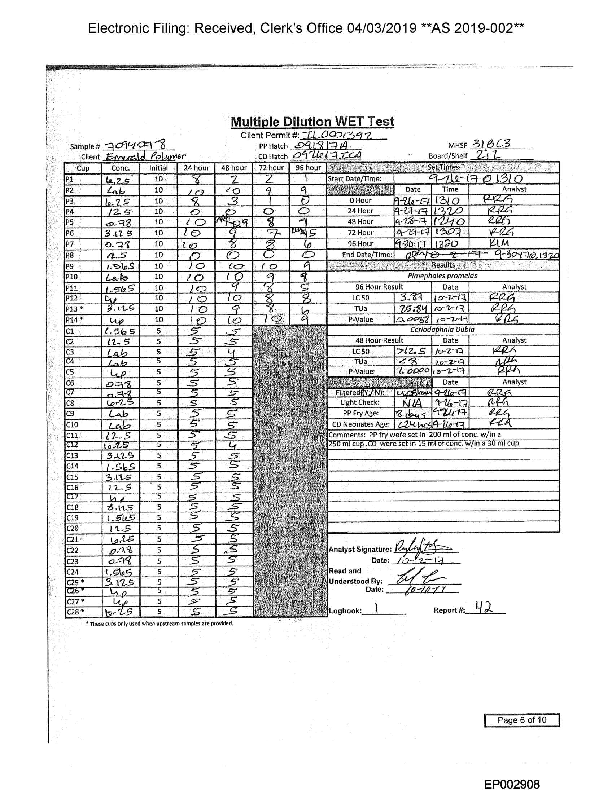 Electronic Filing: Received, Clerk's Office 04/03/2019 **AS 2019-002**
Multiple Dilution WET Test
Client Permit #: IL0001392
Sample # 7094098 PP Hatch 091817A MHSF 31BC3
Client Emerald Polymer CD Hatch Board/Shelf 2
Cup Conc. Initial 24 hour 48 hour 72 hour 96 hour Set Times
P1 6.25 10 8 2 2 1 Start Date/Time: 9-26-17 @ 1310
P2 Lab 10 10 10 9 9 Date Time Analyst
P3 6.25 10 8 3 1 0 0 Hour 9-26-17 1310 RRG
P4 12.5 10 0 0 0 0 24 Hour 9-27-17 1320 RRG
P5 0.78 10 10 9 8 9 48 Hour 9-28-17 1240 RRG
P6 3.125 10 10 9 7 5 72 Hour 9-29-17 1307 RRG
P7 0.78 10 10 8 8 6 96 Hour 9-30-17 1320 KLM
P8 12.5 10 0 0 0 0 End Date/Time: 9-30-17 @ 1320
P9 1.565 10 10 10 10 9 Results
P10 Lab 10 10 10 9 9 Pimephales promelas
P11 1.565 10 10 9 8 5 96 Hour Result Date Analyst
P12 up 10 10 10 8 8 LC50 3.87 10-2-17 RRG
P13 * 3.125 10 10 9 8 6 TUa 25.84 10-2-17 RRG
P14 * up 10 10 10 10 9 P-Value 10-2-17 RRG
C1 1.565 5 5 5 Ceriodaphnia Dubia
C2 12.5 5 5 5 48 Hour Result Date Analyst
C3 Lab 5 5 4 LC50 >12.5 10-2-17 RRG
C4 Lab 5 5 5 TUa <8 10-2-17 RRG
C5 up 5 5 5 P-Value 1.0000 10-2-17 RRG
C6 0.78 5 5 5 Date Analyst
C7 0.78 5 5 5 Filtered(Y/N): 9-26-17 RRG
C8 6.25 5 5 5 Light Check: N/A 9-26-17 RRG
C9 Lab 5 5 5 PP Fry Age: 8 days 9-26-17 RRG
C10 Lab 5 5 5 CD Neonates Age: <24 hrs 9-26-17 RRG
C11 12.5 5 5 5 Comments: PP fry were set in 200 ml of conc. w/in a
C12 6.25 5 5 4 250 ml cup. CD were set in 15 ml of conc. w/in a 30 ml cup
C13 3.125 5 5 5
C14 1.565 5 5 5
C15 3.125 5 5 5
C16 12.5 5 5 5
C17 up 5 5 5
C18 3.125 5 5 5
C19 1.565 5 5 5
C20 12.5 5 5 5
C21 6.25 5 5 5
C22 0.78 5 5 5 Analyst Signature:
C23 0.78 5 5 5 Date: 10-2-17
C24 1.565 5 5 5 Read and
C25 * 3.125 5 5 5 Understood By:
C26 * up 5 5 5 Date: 10-10-17
C27 * up 5 5 5
C28 * 6.25 5 5 5 Logbook: 1 Report #: 42
* These cups only used when upstream samples are provided.
Page 6 of 10
EP002908